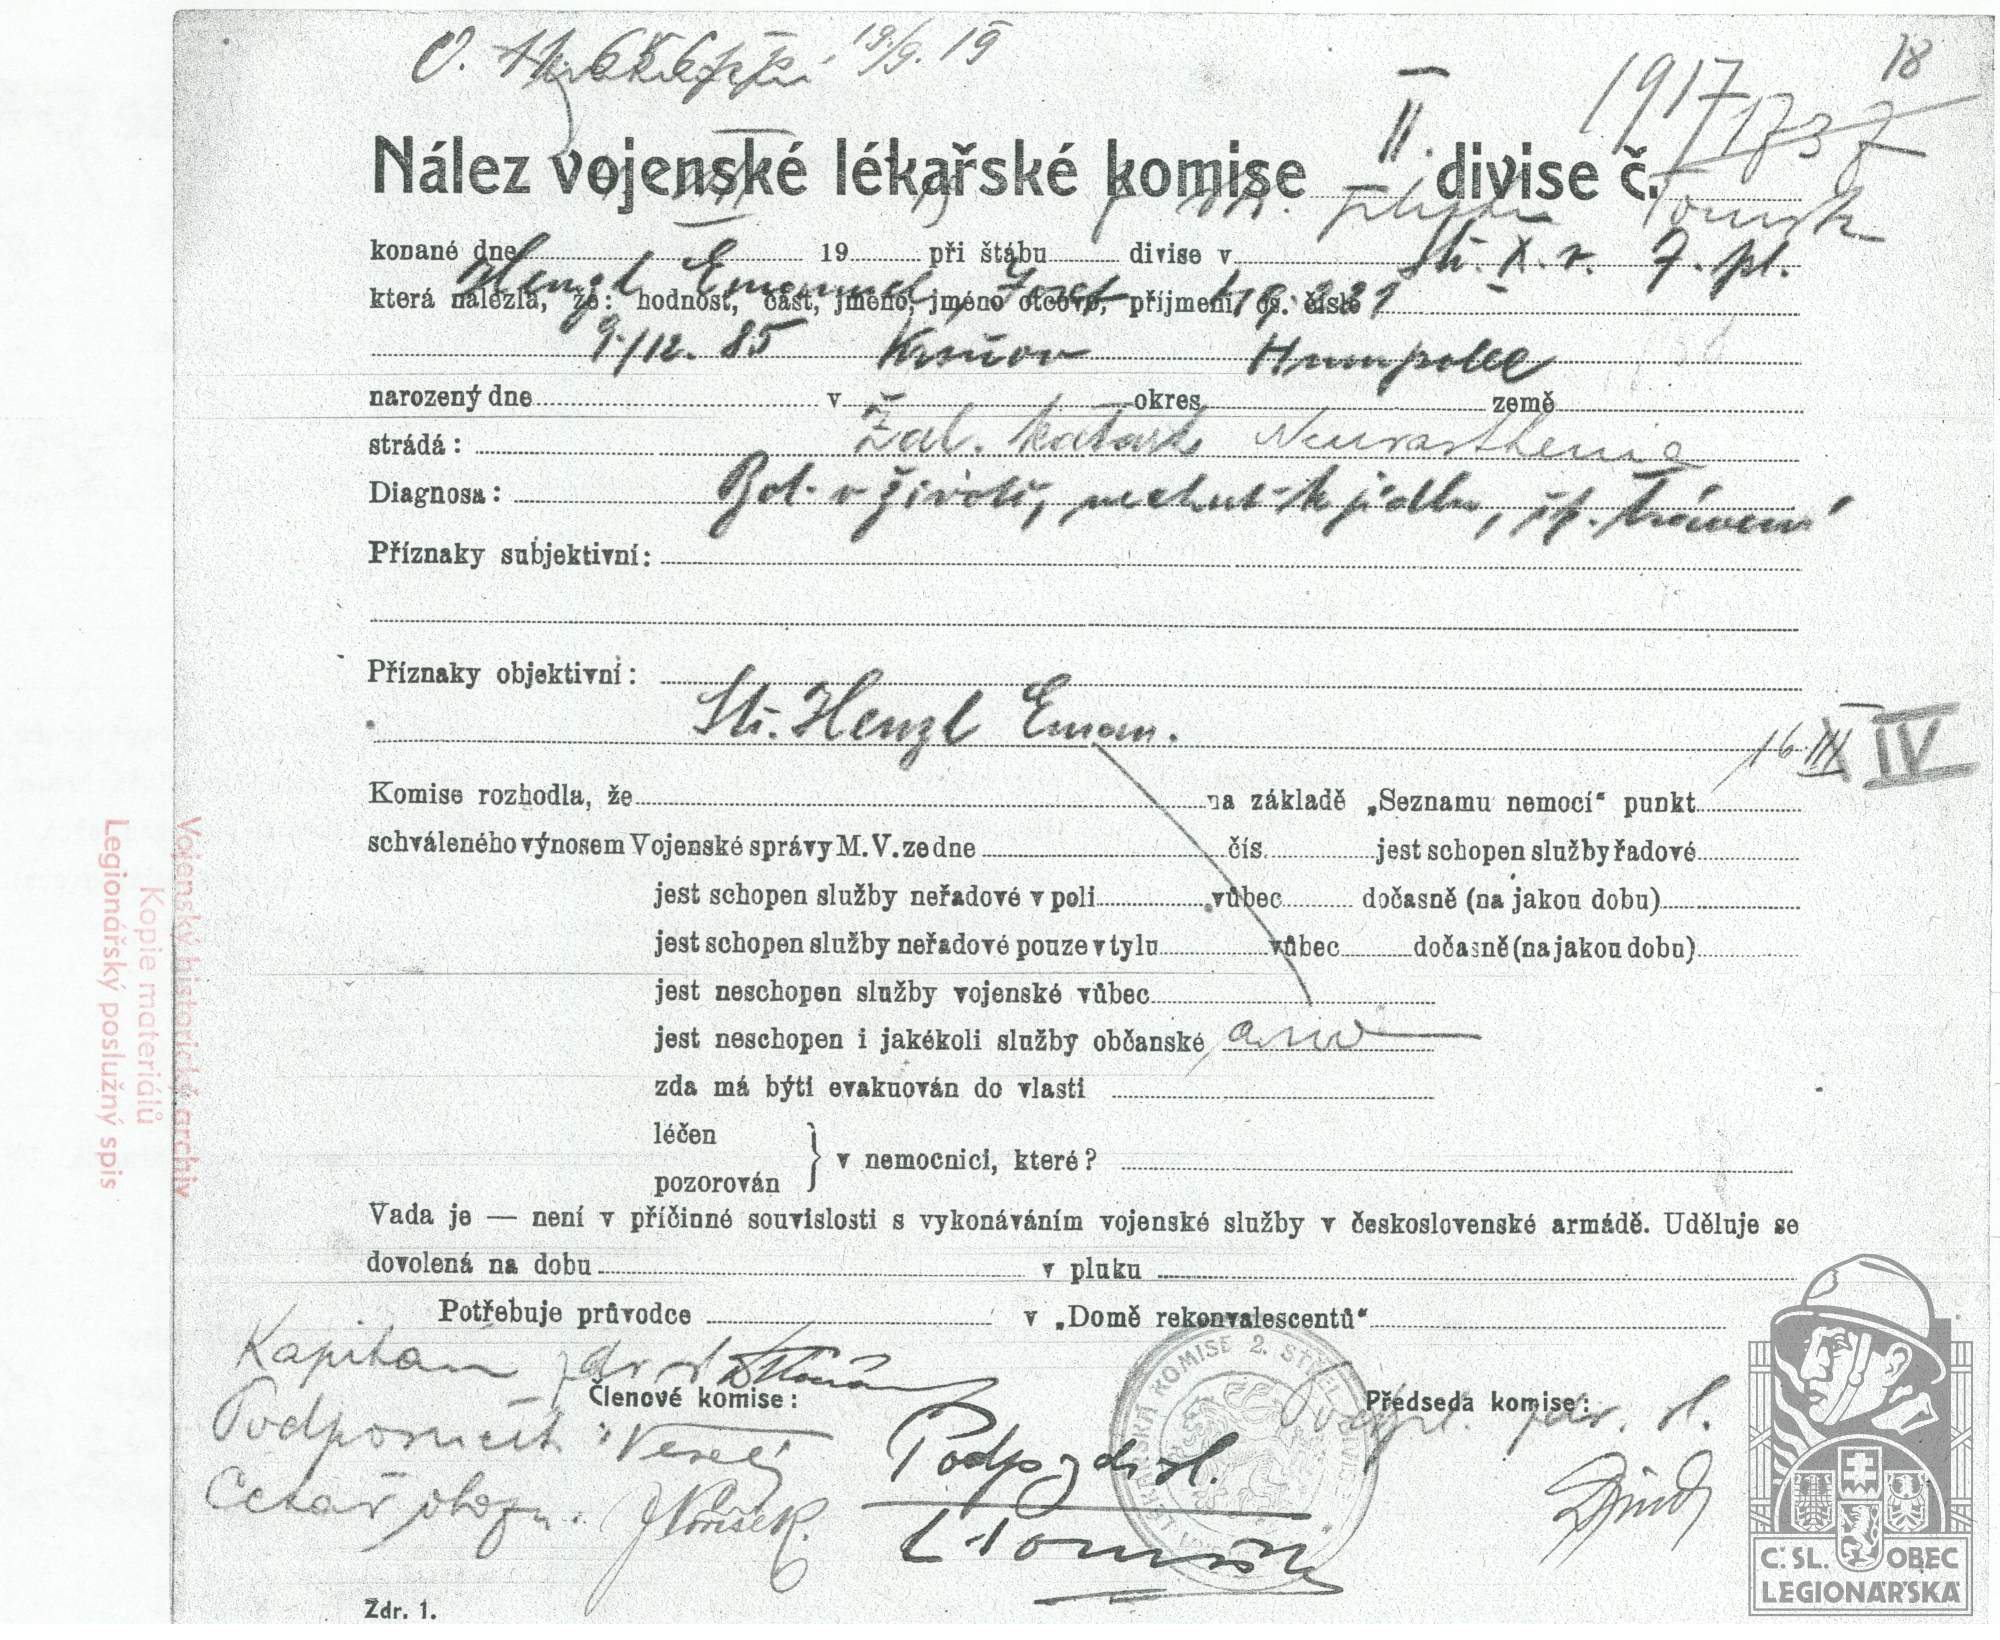 19/9. 19
18
1917
1737
Nález vojenské lékařské komise II. divise č.
Tomsk
konané dne 19 při štábu divise v
stř. X. r. 7. pl.
Henzl Emanuel, Josef
která nálezla, že: hodnost, část, jméno, jméno otcovo, příjmení, os. číslo
9./12. 85 Humpolec
narozený dne v okres země
Žal. katarh Neurasthenia
strádá:
Bol. v životě, nechuť k jídlu, šp. trávení
Diagnosa:
Příznaky subjektivní:
Příznaky objektivní:
Stř. Henzl Eman.
16 III IV
Komise rozhodla, že na základě „Seznamu nemocí“ punkt
schváleného výnosem Vojenské správy M. V. ze dne čís. jest schopen služby řadové
jest schopen služby neřadové v poli vůbec dočasně (na jakou dobu)
jest schopen služby neřadové pouze v tylu vůbec dočasně (na jakou dobu)
jest neschopen služby vojenské vůbec
jest neschopen i jakékoli služby občanské ano
zda má býti evakuován do vlasti
léčen
pozorován } v nemocnici, které?
Vada je — není v příčinné souvislosti s vykonáváním vojenské služby v československé armádě. Uděluje se
dovolená na dobu v pluku
Potřebuje průvodce v „Domě rekonvalescentů“
Kapitán
Členové komise: Předseda komise:
Podporučík Veselý
Zdr. 1.
LÉKAŘSKÁ KOMISE 2. STŘEL. DIVIS
Vojenský historický archiv
Kopie materiálů
Legionářský poslužný spis
Č. SL. OBEC
LEGIONÁŘSKÁ